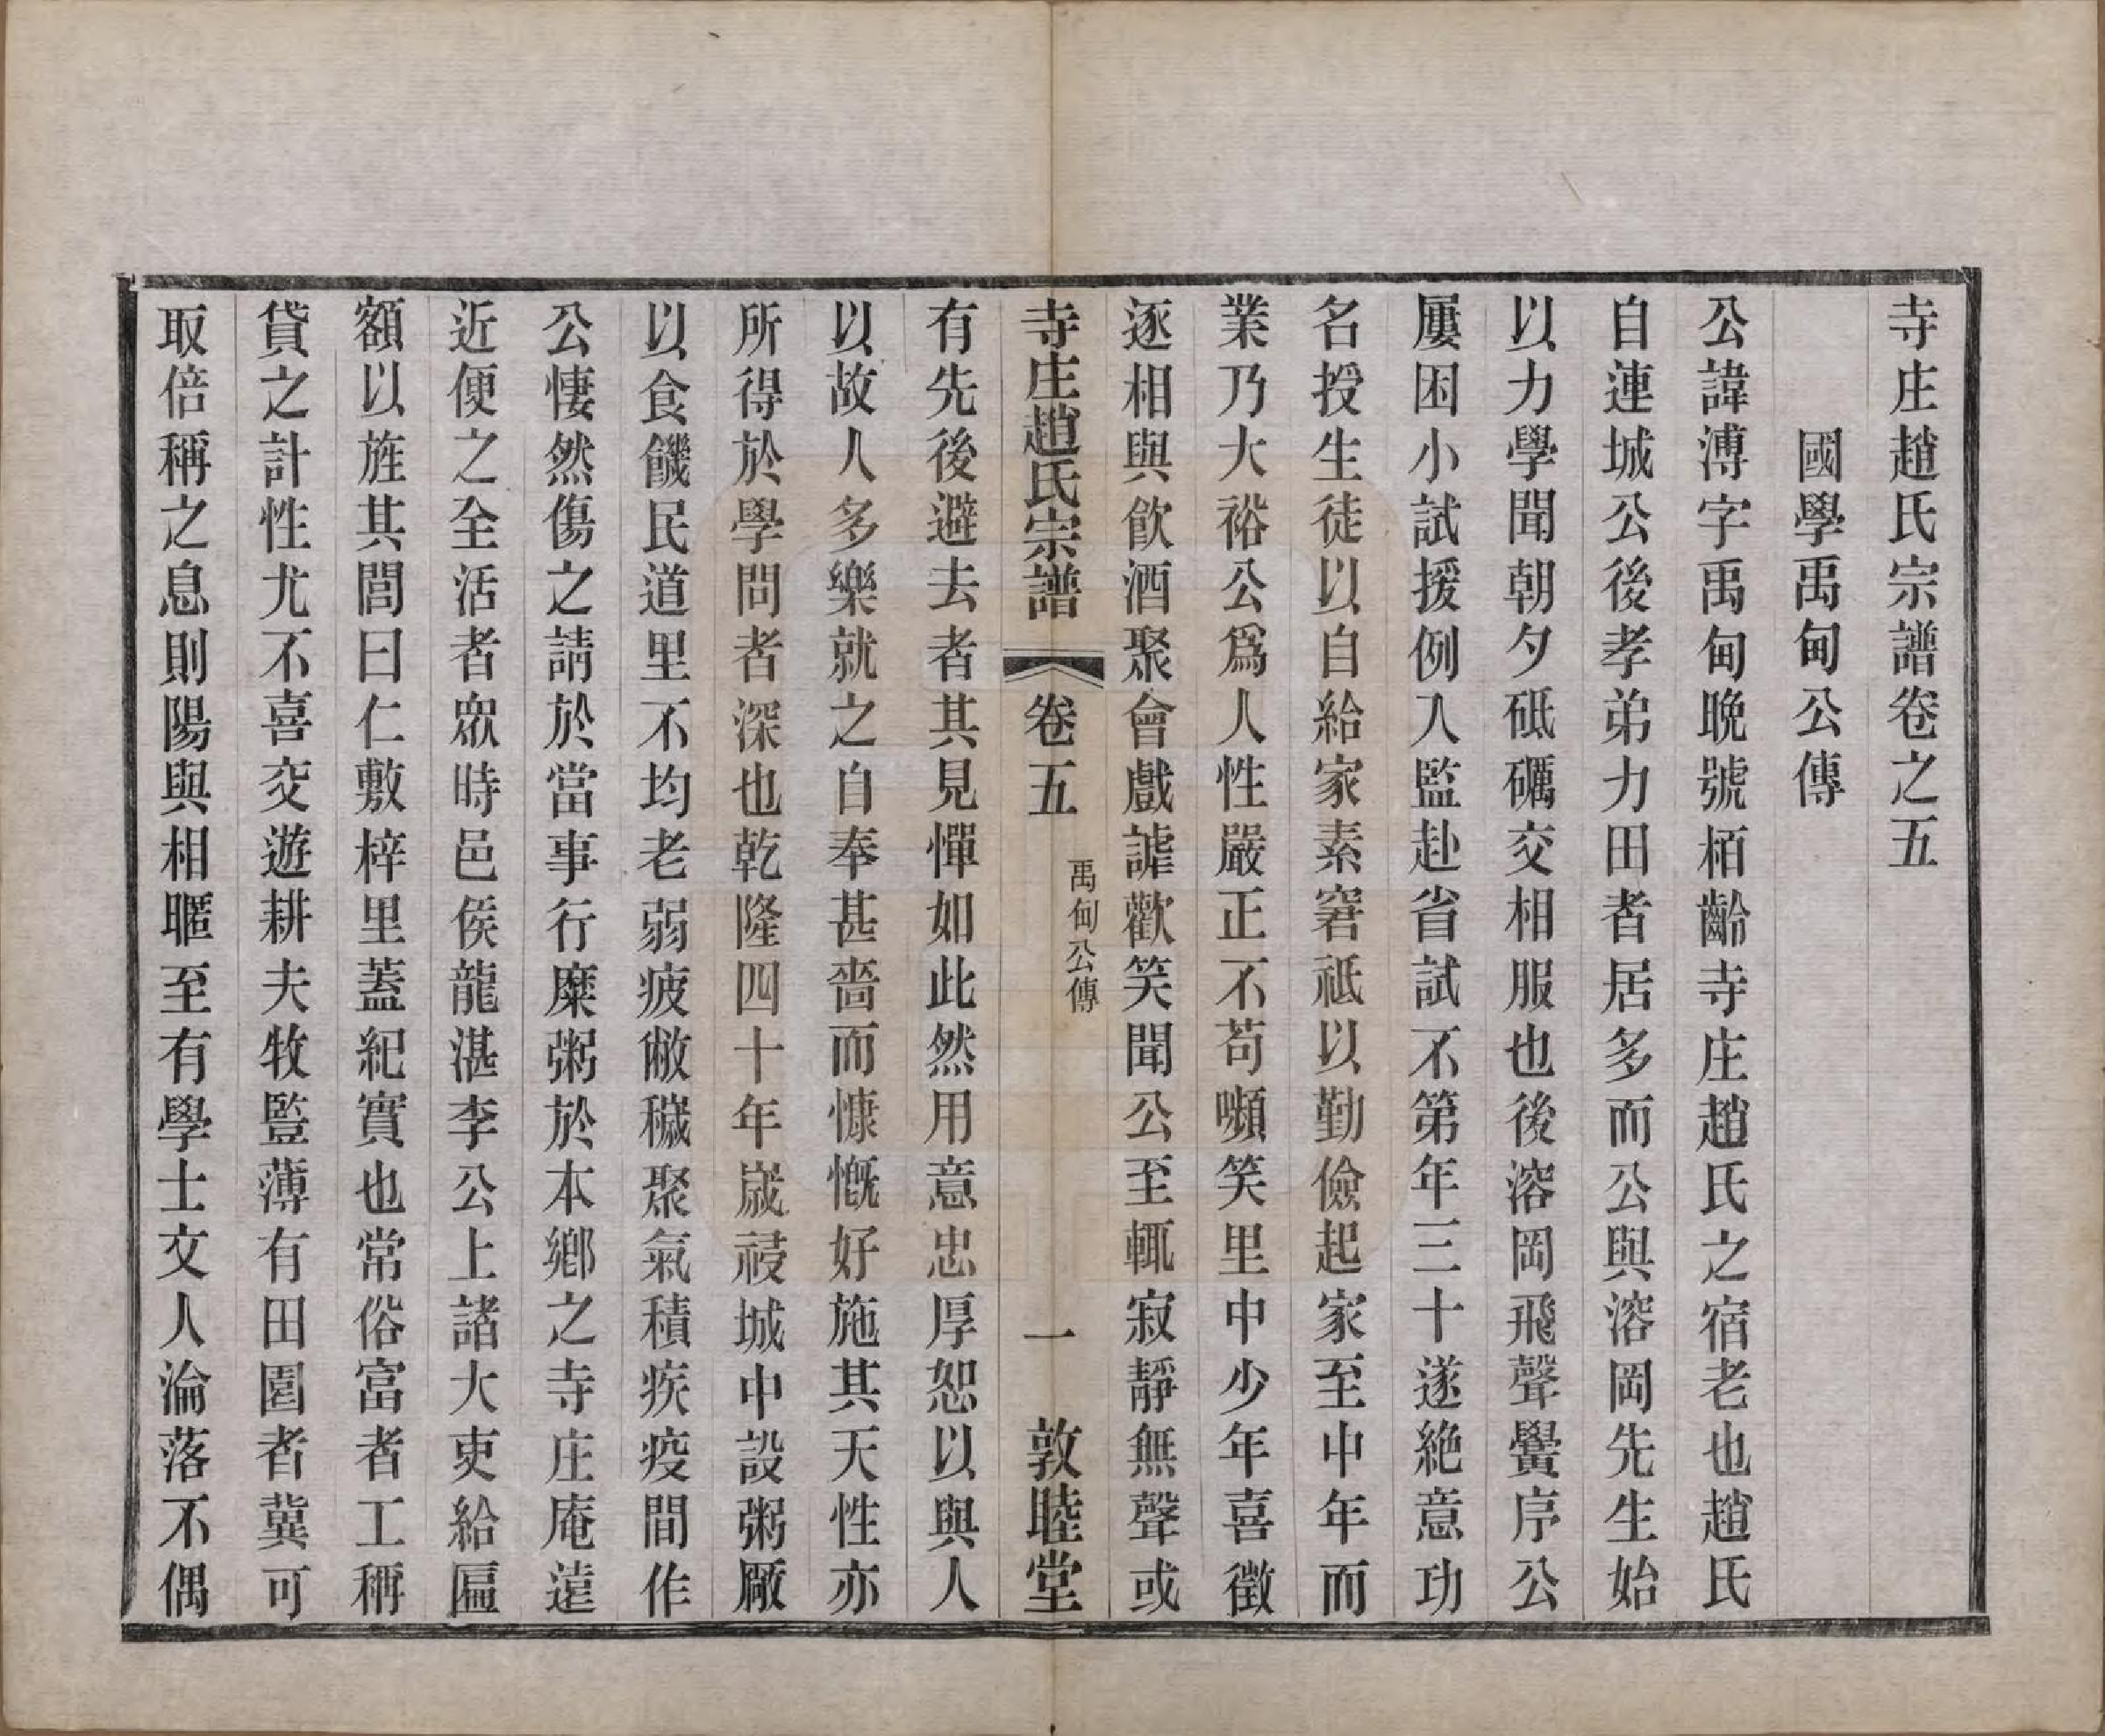 寺庄趙氏宗譜卷之五
國學禹甸公傳
公諱溥字禹甸晚號栢齡寺庄趙氏之宿老也趙氏
自連城公後孝弟力田者居多而公與溶岡先生始
以力學聞朝夕砥礪交相服也後溶岡飛聲黌序公
屢困小試援例入監赴省試不第年三十遂絕意功
名授生徒以自給家素窘祗以勤儉起家至中年而
業乃大裕公爲人性嚴正不苟嚬笑里中少年喜徵
逐相與飲酒聚會戲謔歡笑聞公至輒寂靜無聲或
寺庄趙氏宗譜
卷五
禹甸公傳
一
敦睦堂
有先後避去者其見憚如此然用意忠厚恕以與人
以故人多樂就之自奉甚嗇而慷慨好施其天性亦
所得於學問者深也乾隆四十年歲祲城中設粥厰
以食饑民道里不均老弱疲敝穢聚氣積疾疫間作
公悽然傷之請於當事行糜粥於本鄉之寺庄庵遠
近便之全活者眾時邑侯龍湛李公上諸大吏給匾
額以旌其閭曰仁敷梓里蓋紀實也常俗富者工稱
貸之計性尤不喜交遊耕夫牧監薄有田園者冀可
取倍稱之息則陽與相暱至有學士文人淪落不偶